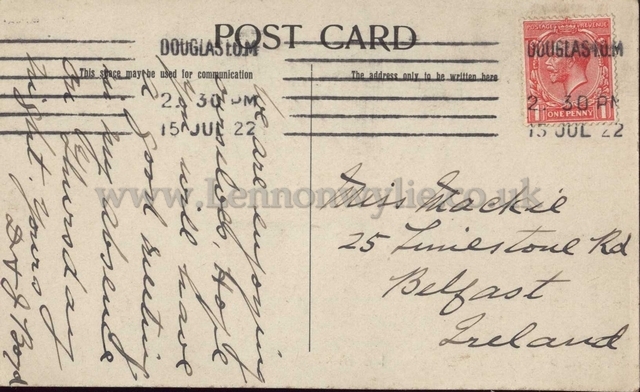 POST CARD
DOUGLAS I.O.M
2. 30 PM
15 JUL 22
DOUGLAS I.O.M
2. 30 PM
15 JUL 22
ONE PENNY
This space may be used for communication
The address only to be written here
We are enjoying
ourselves, Hope
you will have
a good meeting
in my absence
on Thursday
night. Yours
Boyd
Miss Mackie
25 Limestone Rd
Belfast
Ireland
www.Lennonwylie.co.uk